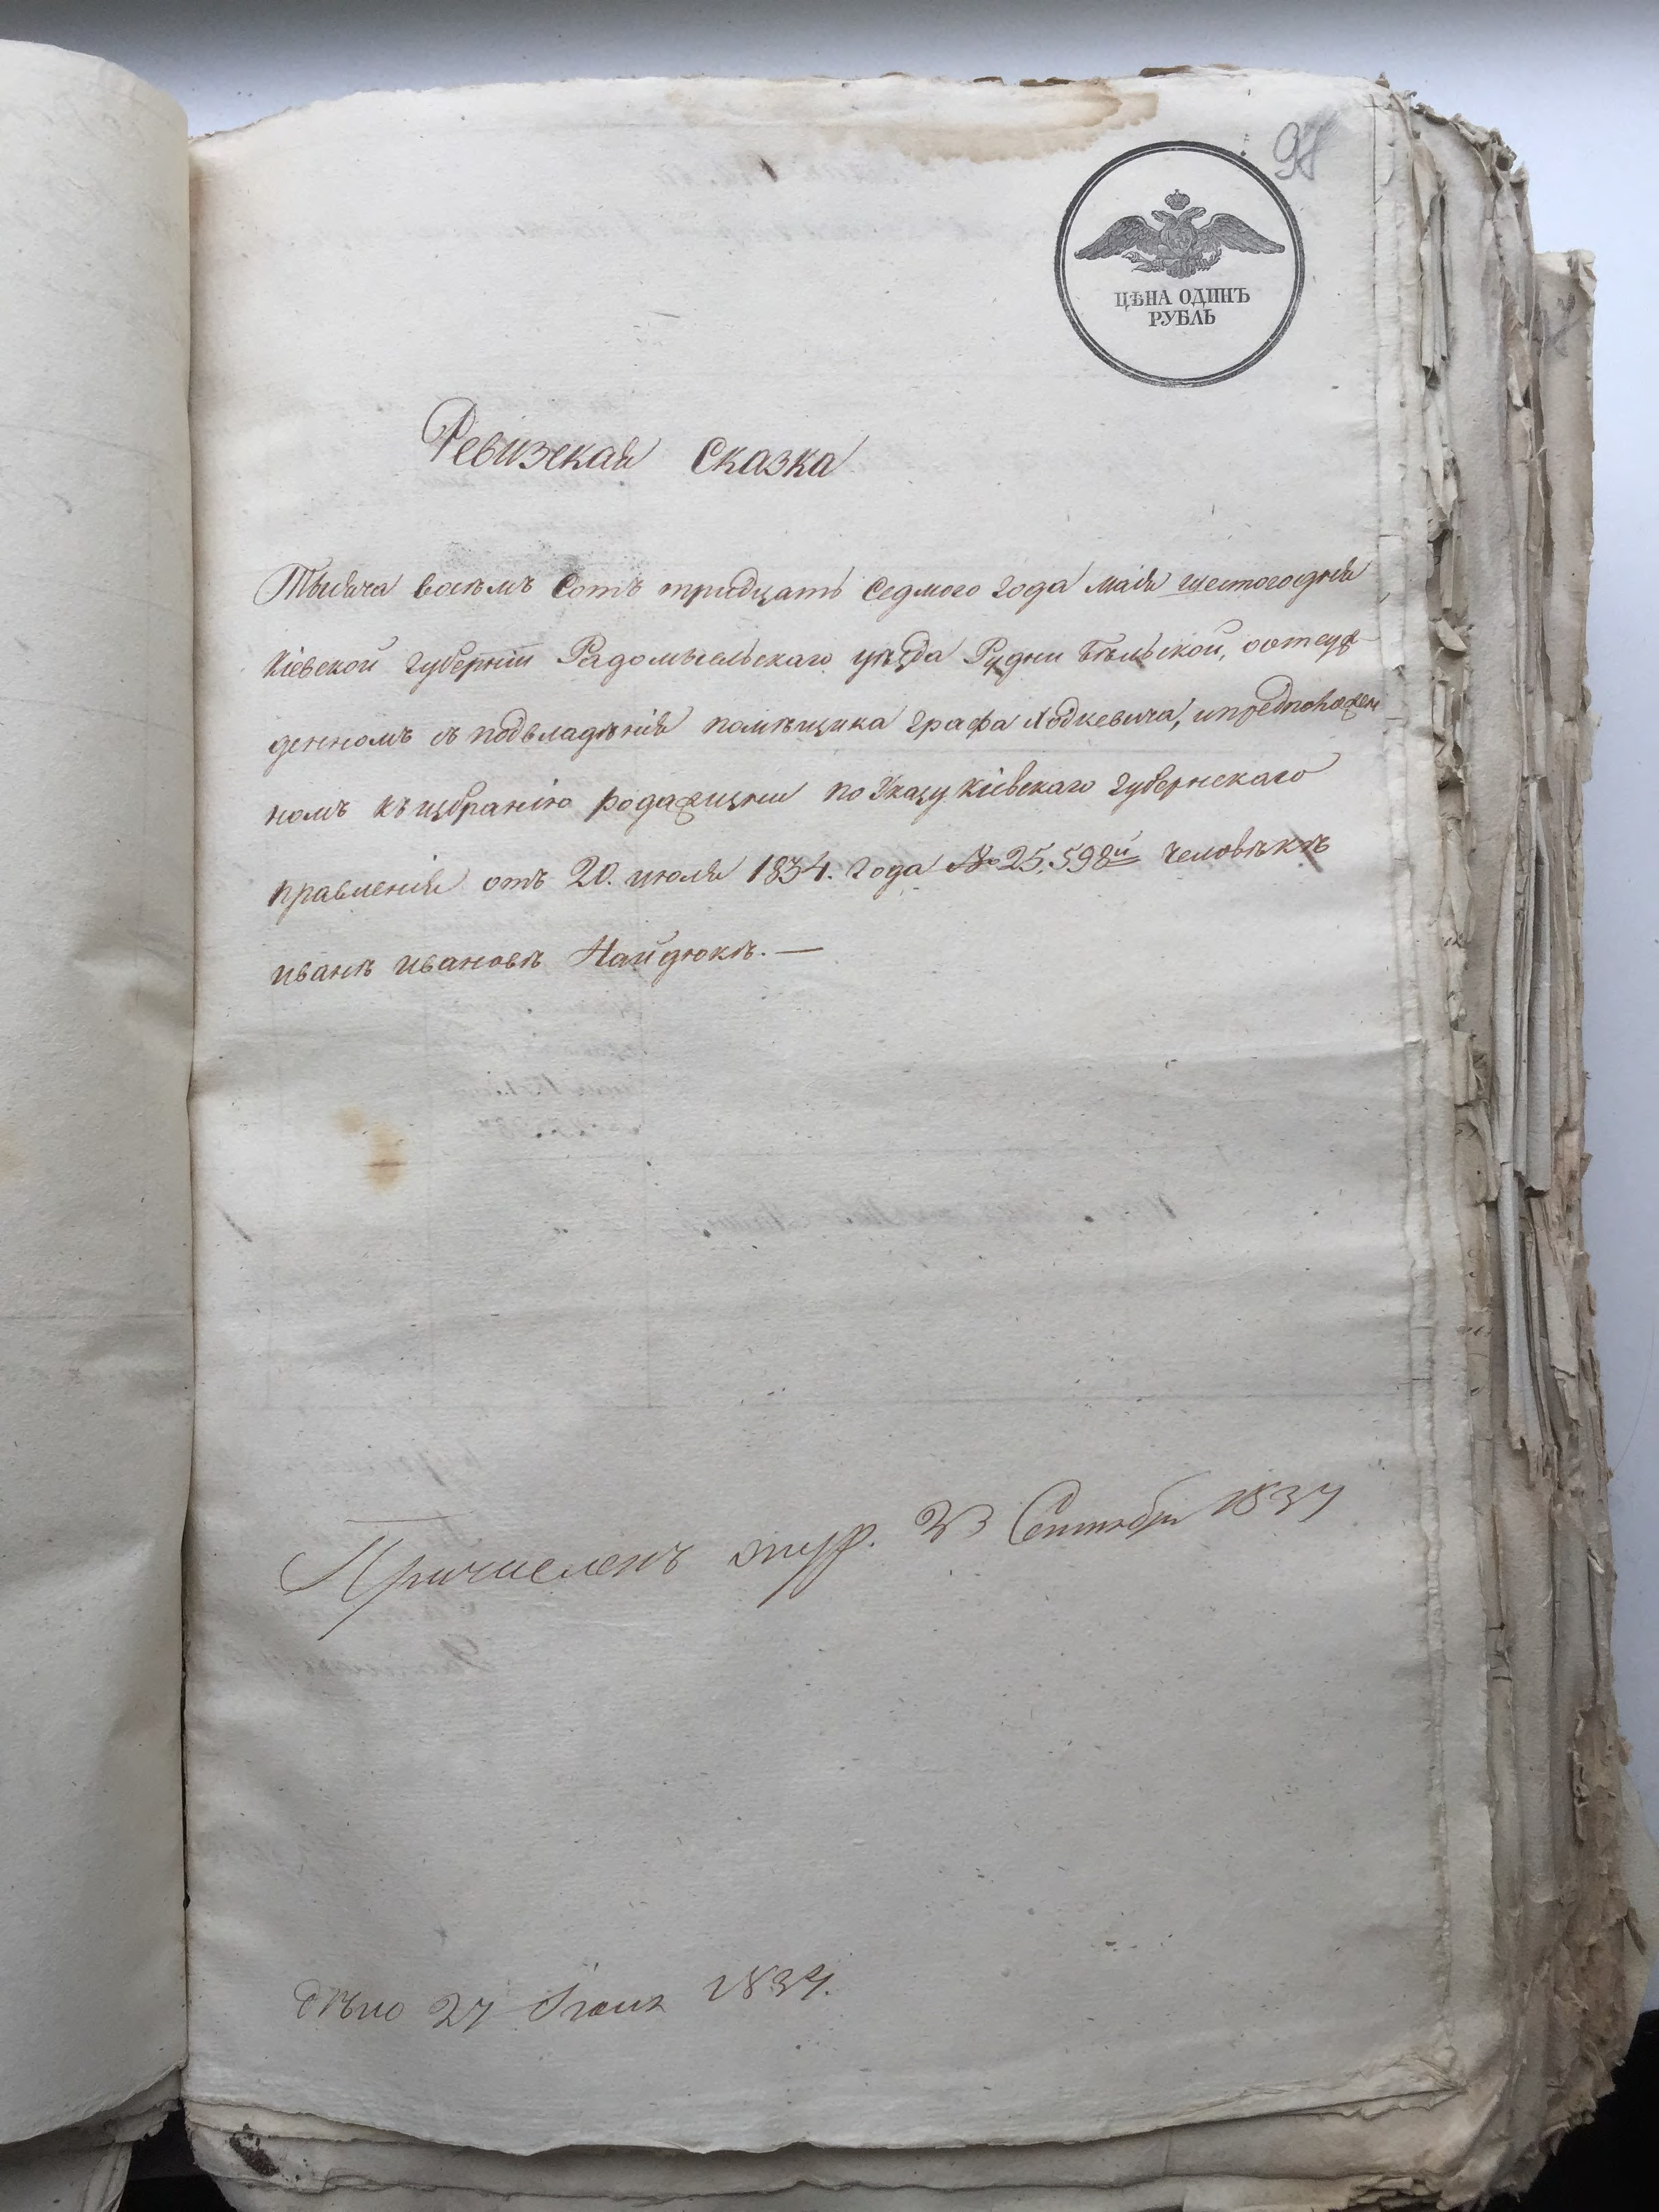 ЦѢНА ОДИНЪ
РУБЛЬ
Ревизская Сказка
Тысяча восемъ Сотъ тридцать Седмого года маія шестогодня
Кіевской Губерніи Радомысльскаго уѣзда Рудни Бѣльской, оотсуж
денномъ съ подвладѣнія помѣщика Графа Ходкевича, ипредположен
номъ къ избранію родажизни по Указу Кіевскаго Губернскаго
правленія отъ 20. июля 1834. Года № 25.598й человѣкѣ
иванѣ ивановѣ Найдюкѣ. —
Причисленъ 23 Сентября 1837
дѣло 27 1837.